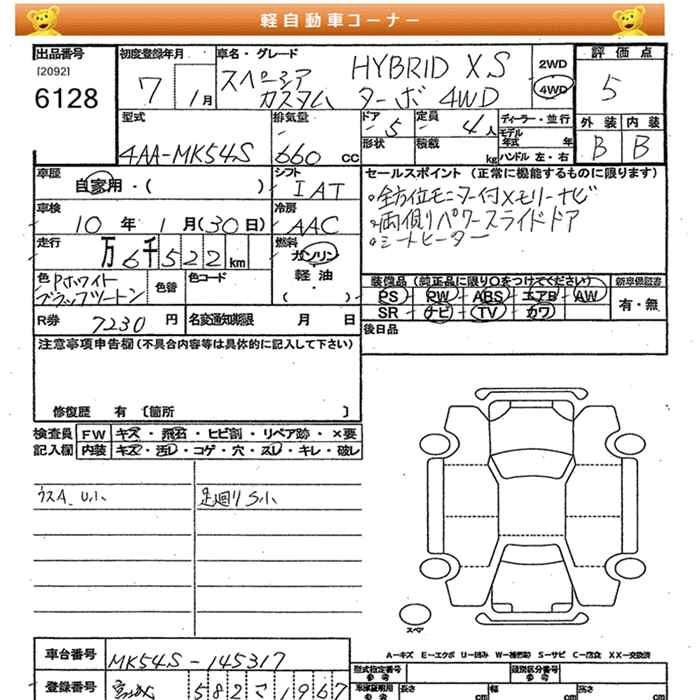 軽自動車コーナー
出品番号
[2092]
6128
初度登録年月
7 1月
車名・グレード
スペーシア HYBRID XS
カスタム ターボ 4WD
2WD
4WD
評価点
5
外装 内装
B B
型式
4AA-MK54S
排気量
660 cc
ドア 5
定員 4人
形状
積載 kg
ディーラー・並行
モデル
年式 年
ハンドル 左・右
車歴
自家用・( )
シフト
IAT
セールスポイント(正常に機能するものに限ります)
・全方位モニター付メモリーナビ
・両側パワースライドドア
・シートヒーター
車検
10年 1月(30日)
冷房
AAC
走行
万 6千522km
燃料
ガソリン
軽油
( )
色 Pホワイト
ブラックツートン
色替
色コード
装備品(純正品に限り○をつけてください)
新車保証書
PS・PW・ABS・エアB・AW
SR・ナビ・TV・カワ
有・無
R券 7230円
名変通知期限 月 日
後日品
注意事項申告欄(不具合内容等は具体的に記入して下さい)
修復歴 有 〔箇所 〕
検査員
記入欄
FW キズ・飛石・ヒビ割・リペア跡・×要
内装 キズ・汚レ・コゲ・穴・スレ・キレ・破レ
ウスA、U小
足廻りS小
スペア
A-キズ E-エクボ U-凹み W-補修跡 S-サビ C-腐食 XX-交換済
車台番号
MK54S-145317
登録番号
582 1967
型式指定番号
参考
類別区分番号
参考
車庫証明用
参考
長さ cm
幅 cm
高さ cm